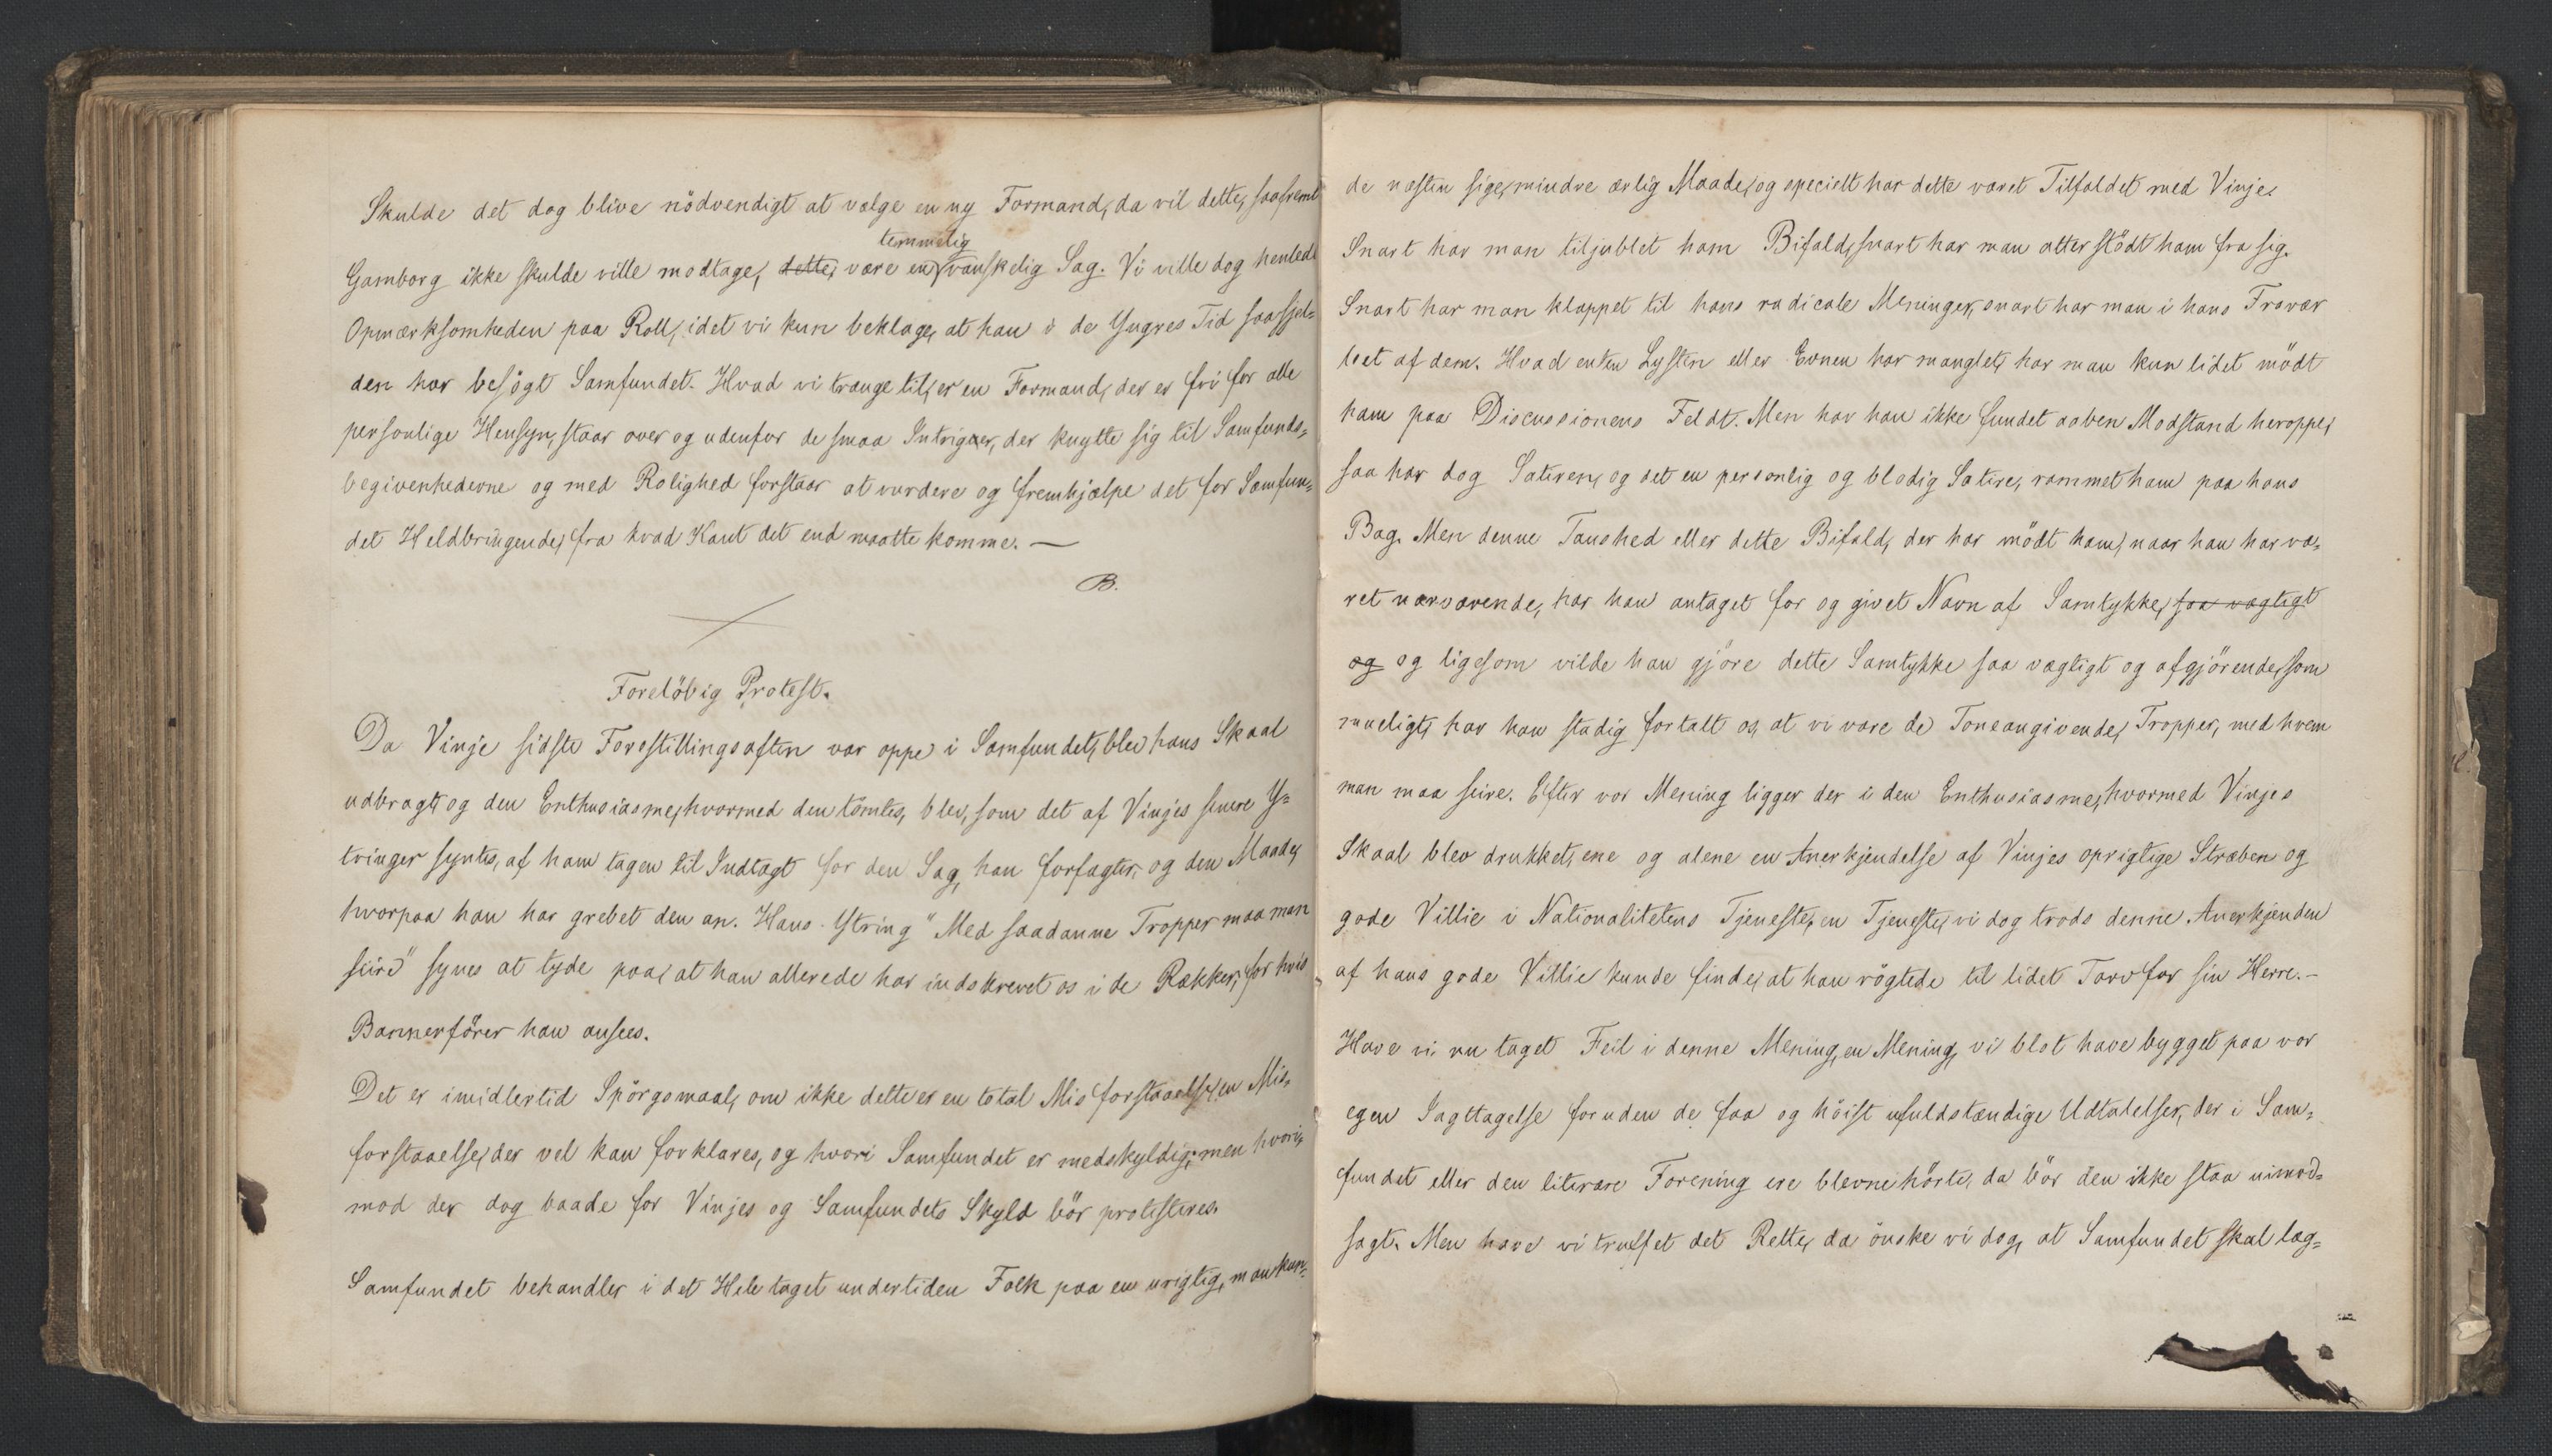 Skulde det dog blive nödvendigt at vælge en ny Formand, da vil dette, saafremt
temmelig
Gamborg ikke skulde ville modtage, dette, være en vanskelig Sag. Vi ville dog henlede
Opmærksomheden paa Roll, idet vi kun beklage, at han i de Yngres Tid saa sjel=
den har besögt Samfundet. Hvad vi trænge til, er en Formand, der er fri for alle
personlige Hensyn, staar over og udenfor de smaa Intriguer, der knytte sig til Samfunds=
begivenhederne og med Rolighed forstaar at vurdere og fremhjælpe det for Samfun=
det Heldbringende, fra hvad Kant det end maatte komme. —
B.
Forelöbig Protest.
Da Vinje sidste Forestillingsaften var oppe i Samfundet, blev hans Skaal
udbragt, og den Enthusiasme, hvormed den tömtes, blev, som det af Vinjes senere Y=
tringer syntes, af ham tagen til Indtægt for den Sag, han forfægter, og den Maade,
hvorpaa han har grebet den an. Hans Ytring "Med saadanne Tropper maa man
seire" synes at tyde paa, at han allerede har indskrevet os i de Rækker, for hvis
Bannerförer han ansees.
Det er imidlertid Spörgsmaal, om ikke dette er en total Misforstaaelse, en Mis=
forstaaelse, der vel kan forklares, og hvori Samfundet er medskyldig; men hvori=
mod der dog baade for Vinjes og Samfundets Skyld bör protesteres.
Samfundet behandler i det Hele taget undertiden Folk paa en urigtig, man kun=
de næsten sige, mindre ærlig Maade, og specielt har dette været Tilfældet med Vinje.
Snart har man tiljublet ham Bifald, snart har man atter stödt ham fra sig.
Snart har man klappet til hans radicale Meninger, snart har man i hans Fravær
leet af dem. Hvad enten Lysten eller Evnen har manglet, har man kun lidet mödt
ham paa Discussionens Feldt. Men har han ikke fundet aaben Modstand heroppe,
saa har dog Satiren, og det en personlig og blodig Satire, rammet ham paa hans
Bag. Men denne Taushed eller dette Bifald, der har mödt ham, naar han har væ=
ret nærværende, har han antaget for og givet Navn af Samtykke, saa vægtigt
og og ligesom vilde han gjöre dette Samtykke saa vægtigt og afgjörende, som
mueligt, har han stadig fortalt os, at vi vare de Toneangivende, Tropper, med hvem
man maa seire. Efter vor Mening ligger der i den Enthusiasme, hvormed Vinjes
Skaal blev drukket, ene og alene en Anerkjendelse af Vinjes oprigtige Stræben og
gode Villie i Nationalitetens Tjeneste, en Tjeneste, vi dog trods denne Anerkjenden
af hans gode Villie kunde finde, at han rögtede til lidet Tarv for sin Herre. —
Have vi nu taget Feil i denne Mening, en Mening, vi blot have bygget paa vor
egen Iagttagelse foruden de faa og höist ufuldstændige Udtalelser, der i Sam=
fundet eller den literære Forening ere blevne hörte, da bör den ikke staa uimod=
sagt. Men have vi truffet det Rette, da önske vi dog, at Samfundet skal læg=